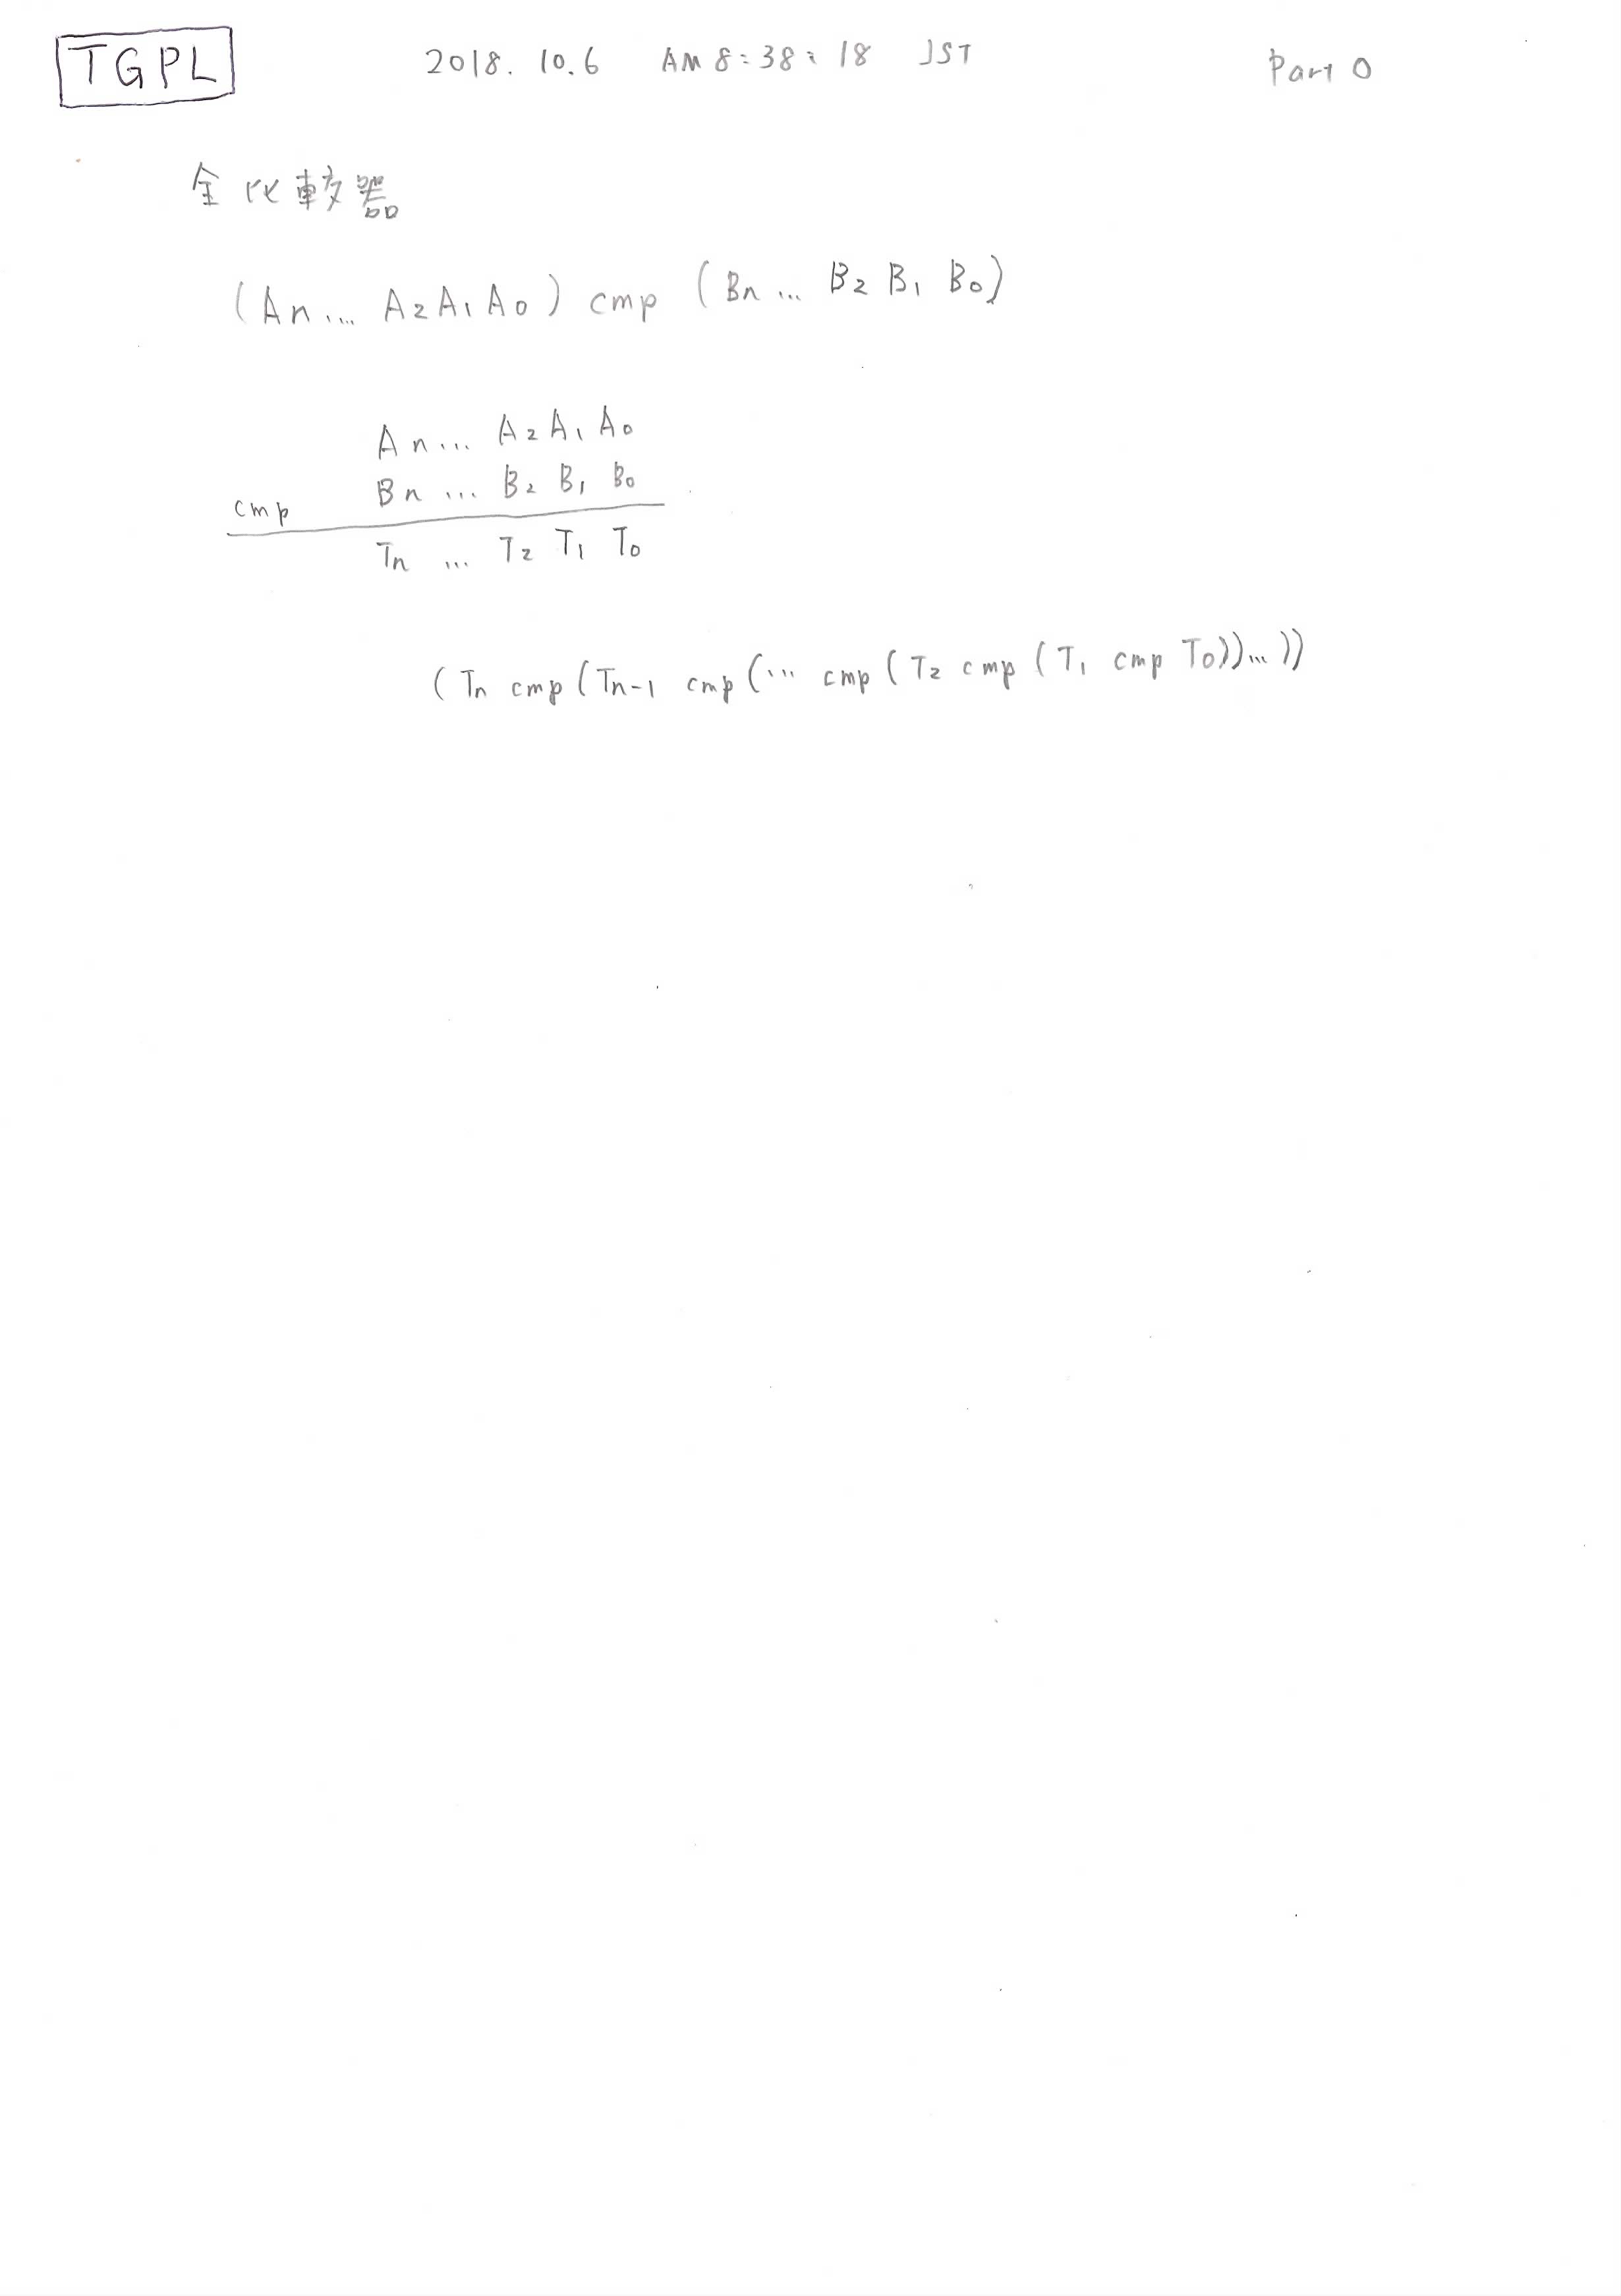 TGPL 2018. 10. 6 AM 8:38:18 JST Part 0
全比較器
(An... A2A1A0) cmp (Bn... B2 B1 B0)
An... A2A1A0
cmp Bn ... B2 B1 B0
Tn ... T2 T1 T0
(Tn cmp (Tn-1 cmp (... cmp (T2 cmp (T1 cmp T0))...))